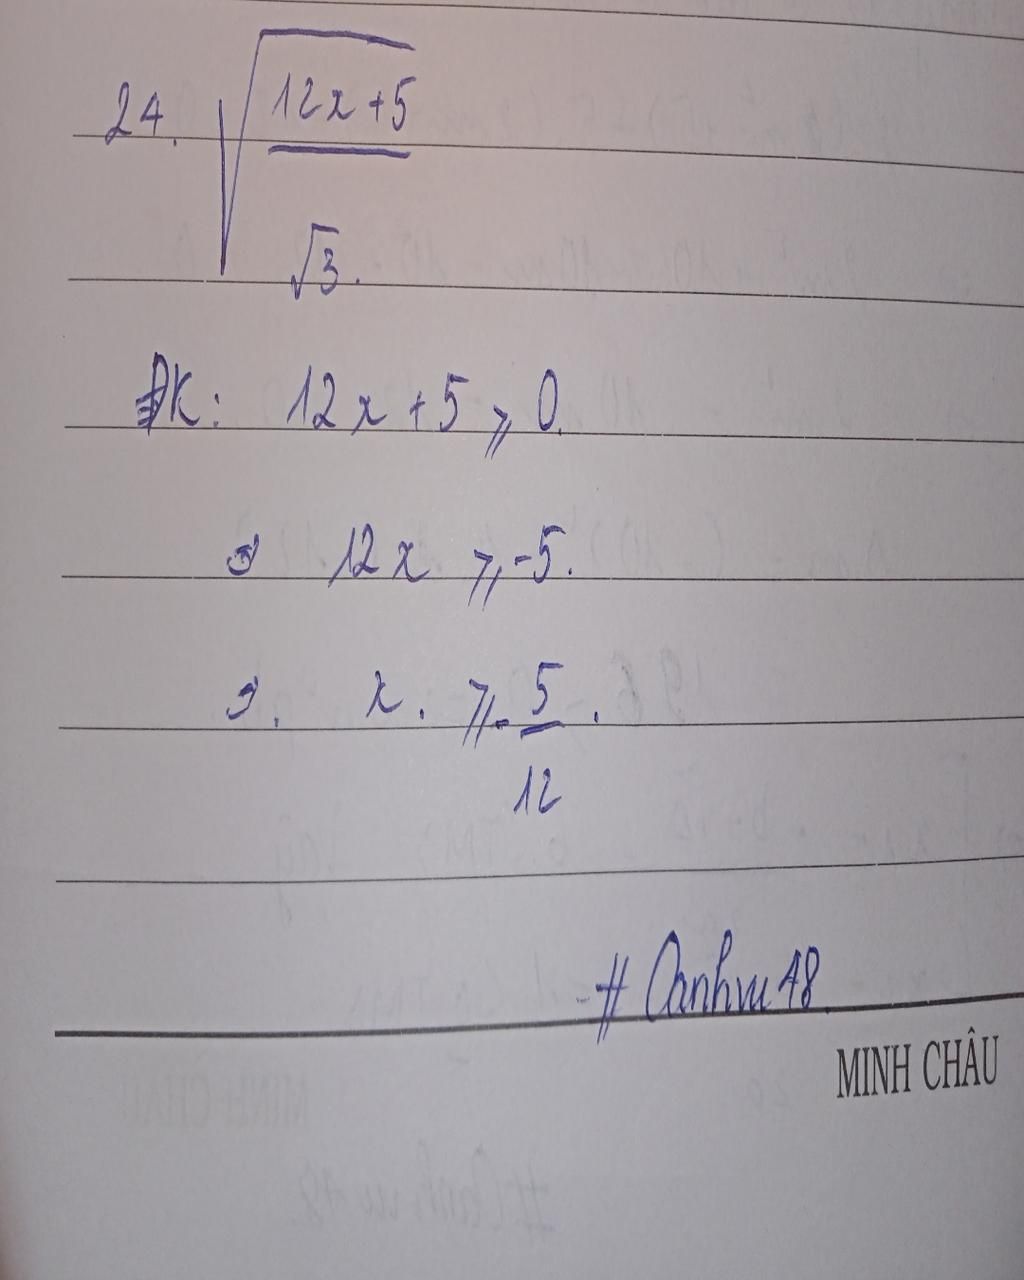 24. √(12x+5 / √3).
ĐK: 12x + 5 ⩾ 0.
⇒ 12x ⩾ -5.
⇒. x. ⩾ - 5/12.
# Oanhvu 18.
MINH CHÂU